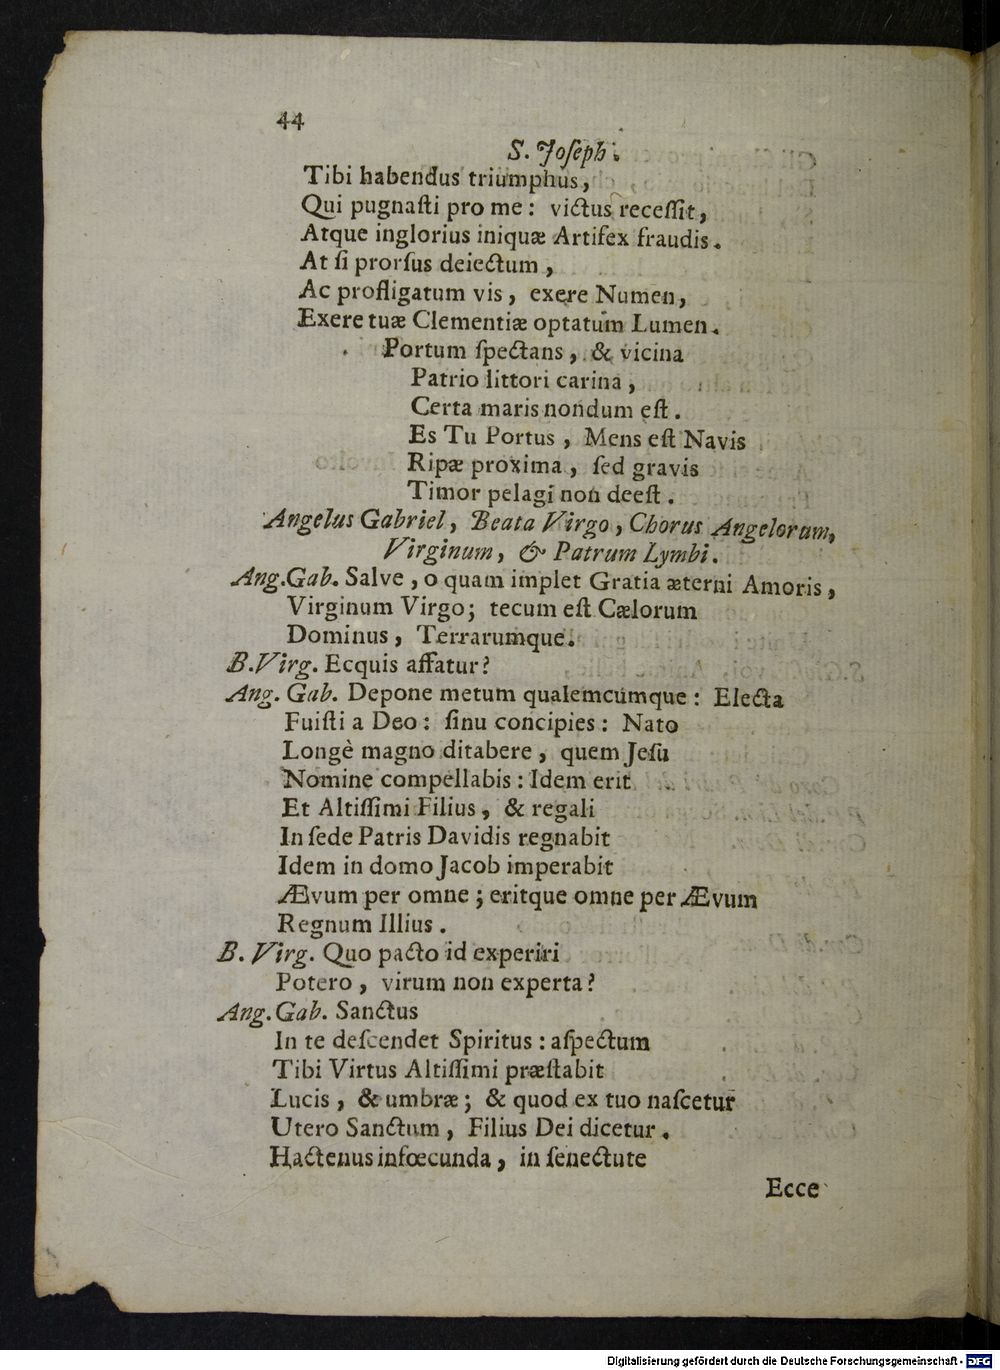 44
S. Joſeph.
Tibi habendus triumphus,
Qui pugnaſti pro me: victus receſſit,
Atque inglorius iniquæ Artifex fraudis.
At ſi prorſus deiectum,
Ac profligatum vis, exere Numen,
Exere tuæ Clementiæ optatum Lumen.
Portum ſpectans, & vicina
Patrio littori carina,
Certa maris nondum eſt.
Es Tu Portus, Mens eſt Navis
Ripæ proxima, ſed gravis
Timor pelagi non deeſt.
Angelus Gabriel, Beata Virgo, Chorus Angelorum,
Virginum, & Patrum Lymbi.
Ang. Gab. Salve, o quam implet Gratia æterni Amoris,
Virginum Virgo; tecum eſt Cælorum
Dominus, Terrarumque.
B. Virg. Ecquis affatur?
Ang. Gab. Depone metum qualemcumque: Electa
Fuiſti a Deo: ſinu concipies: Nato
Longè magno ditabere, quem Jeſu
Nomine compellabis: Idem erit
Et Altiſſimi Filius, & regali
In ſede Patris Davidis regnabit
Idem in domo Jacob imperabit
Ævum per omne; eritque omne per Ævum
Regnum Illius.
B. Virg. Quo pacto id experiri
Potero, virum non experta?
Ang. Gab. Sanctus
In te deſcendet Spiritus: aſpectum
Tibi Virtus Altiſſimi præſtabit
Lucis, & umbræ; & quod ex tuo naſcetur
Utero Sanctum, Filius Dei dicetur.
Hactenus infœcunda, in ſenectute
Ecce
Digitalisierung gefördert durch die Deutsche Forschungsgemeinschaft - DFG